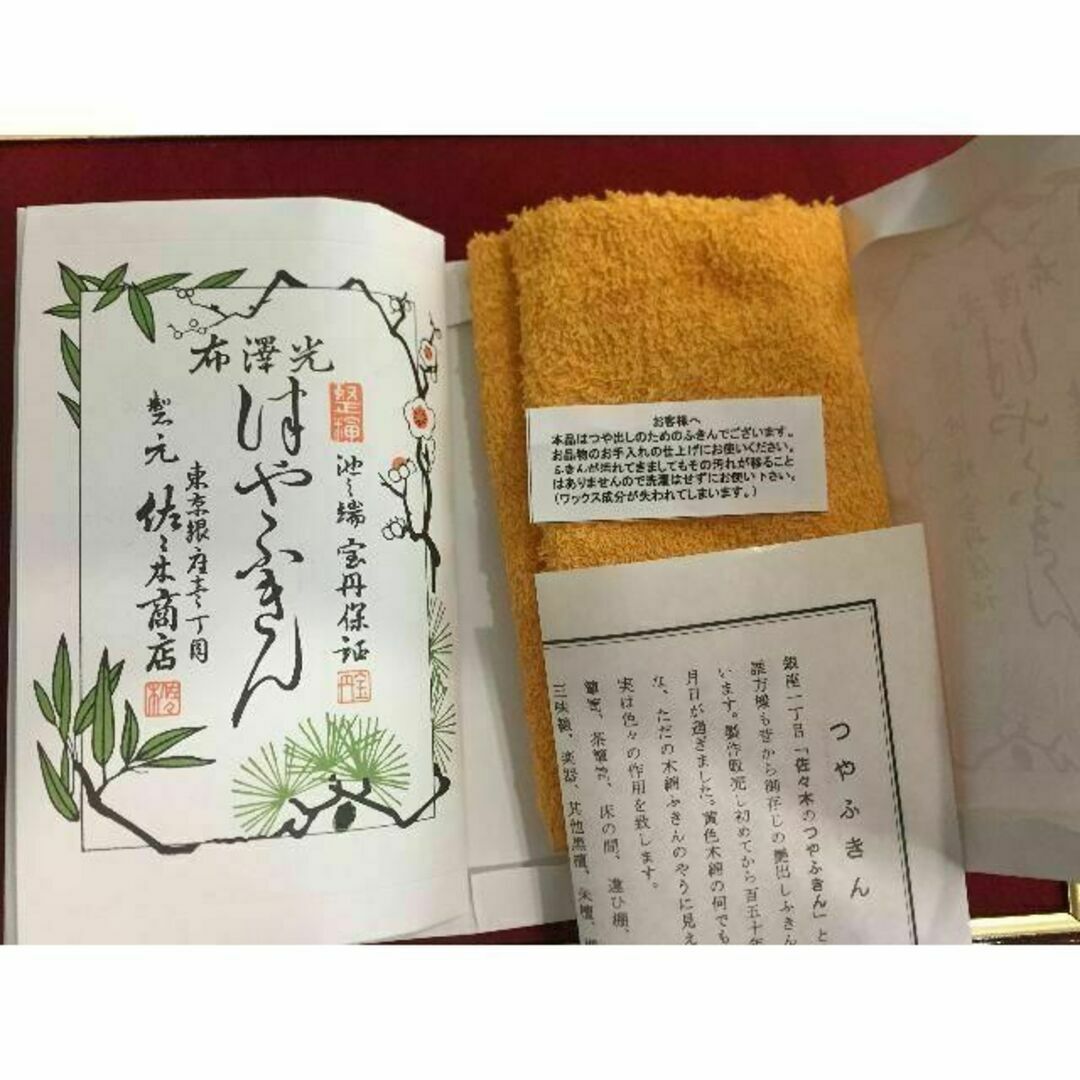 布澤光
つやふきん
池之端宝丹保証
宝丹
製元
東京銀座壱丁目
佐々木商店
お客様へ
本品はつや出しのためのふきんでございます。
お品物のお手入れの仕上げにお使いください。
ふきんが汚れてきましてもその汚れが移ること
はありませんので洗濯はせずにお使い下さい。
（ワックス成分が失われてしまいます。）
つやふきん
銀座一丁目「佐々木のつやふきん」と
諸方様も昔から御存じの艶出しふきん
います。製作販売し初めてから百五十年
月日が過ぎました。黄色木綿の何でも
な、ただの木綿ふきんのやうに見え
実は色々の作用を致します。
簞笥、茶簞笥、床の間、違ひ棚、
三味線、楽器、其他黒檀、朱檀、